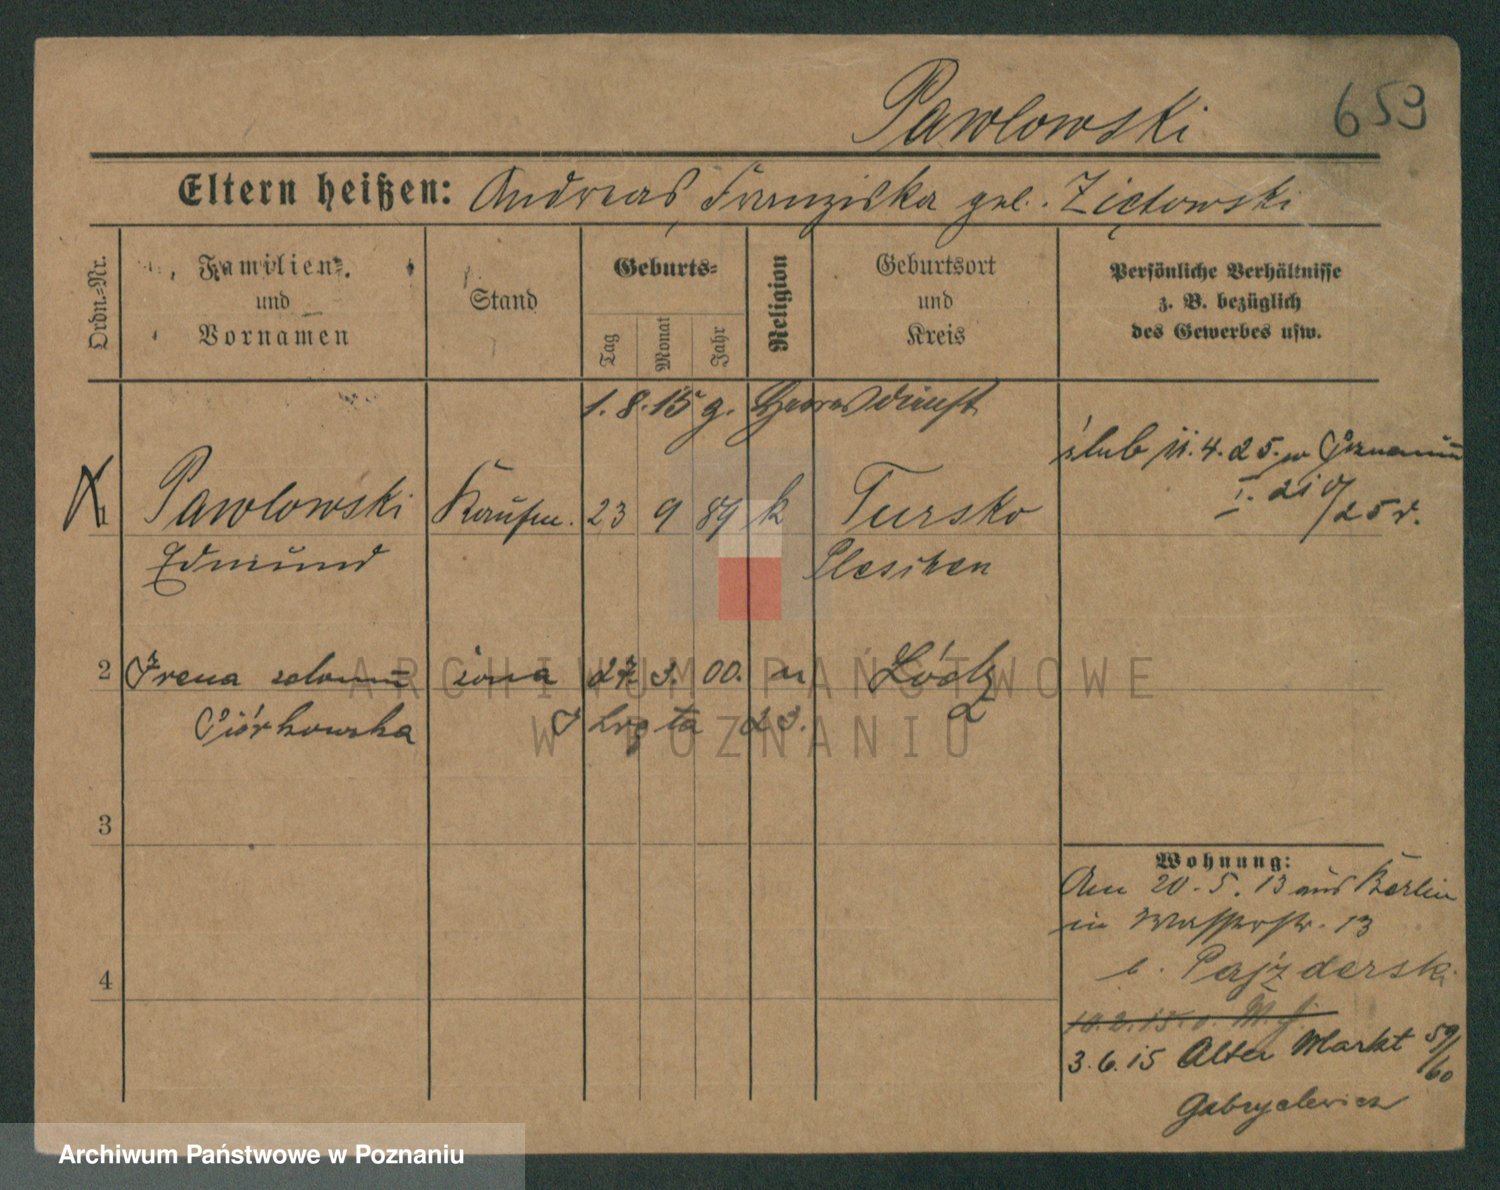 Pawlowski
659
Eltern heißen: Andreas, Franziska geb. Ziętowski
Ordn.-Nr.
Familien-
und
Vornamen
Stand
Geburts-
Tag
Monat
Jahr
Religion
Geburtsort
und
Kreis
Persönliche Verhältnisse
z. B. bezüglich
des Gewerbes usw.
1. 8. 15 z. Heeresdienst
ślub 4. 25. w Poznaniu
1 Pawlowski Kaufm. 23 9 89 k Tursko
25 r.
Edmund Pleschen
2 Irena żona 27 3. 00. Łódz
Piórkowska
23.
3
4
Wohnung:
Am 20. 5. 13 aus Berlin
in Wasserstr. 13
b. Pajzderski
3. 6. 15 Alter Markt 59/60
Gabryelewicz
ARCHIWUM PAŃSTWOWE
W POZNANIU
Archiwum Państwowe w Poznaniu